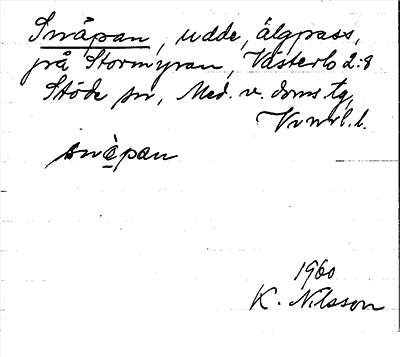 Snåpan, udde, älgpass,
på Stormyran, Västerlo 2:8
Stöde sn, Med. v. doms. tg,
Vnrl. l.
snåpan
1960
K. Nilsson